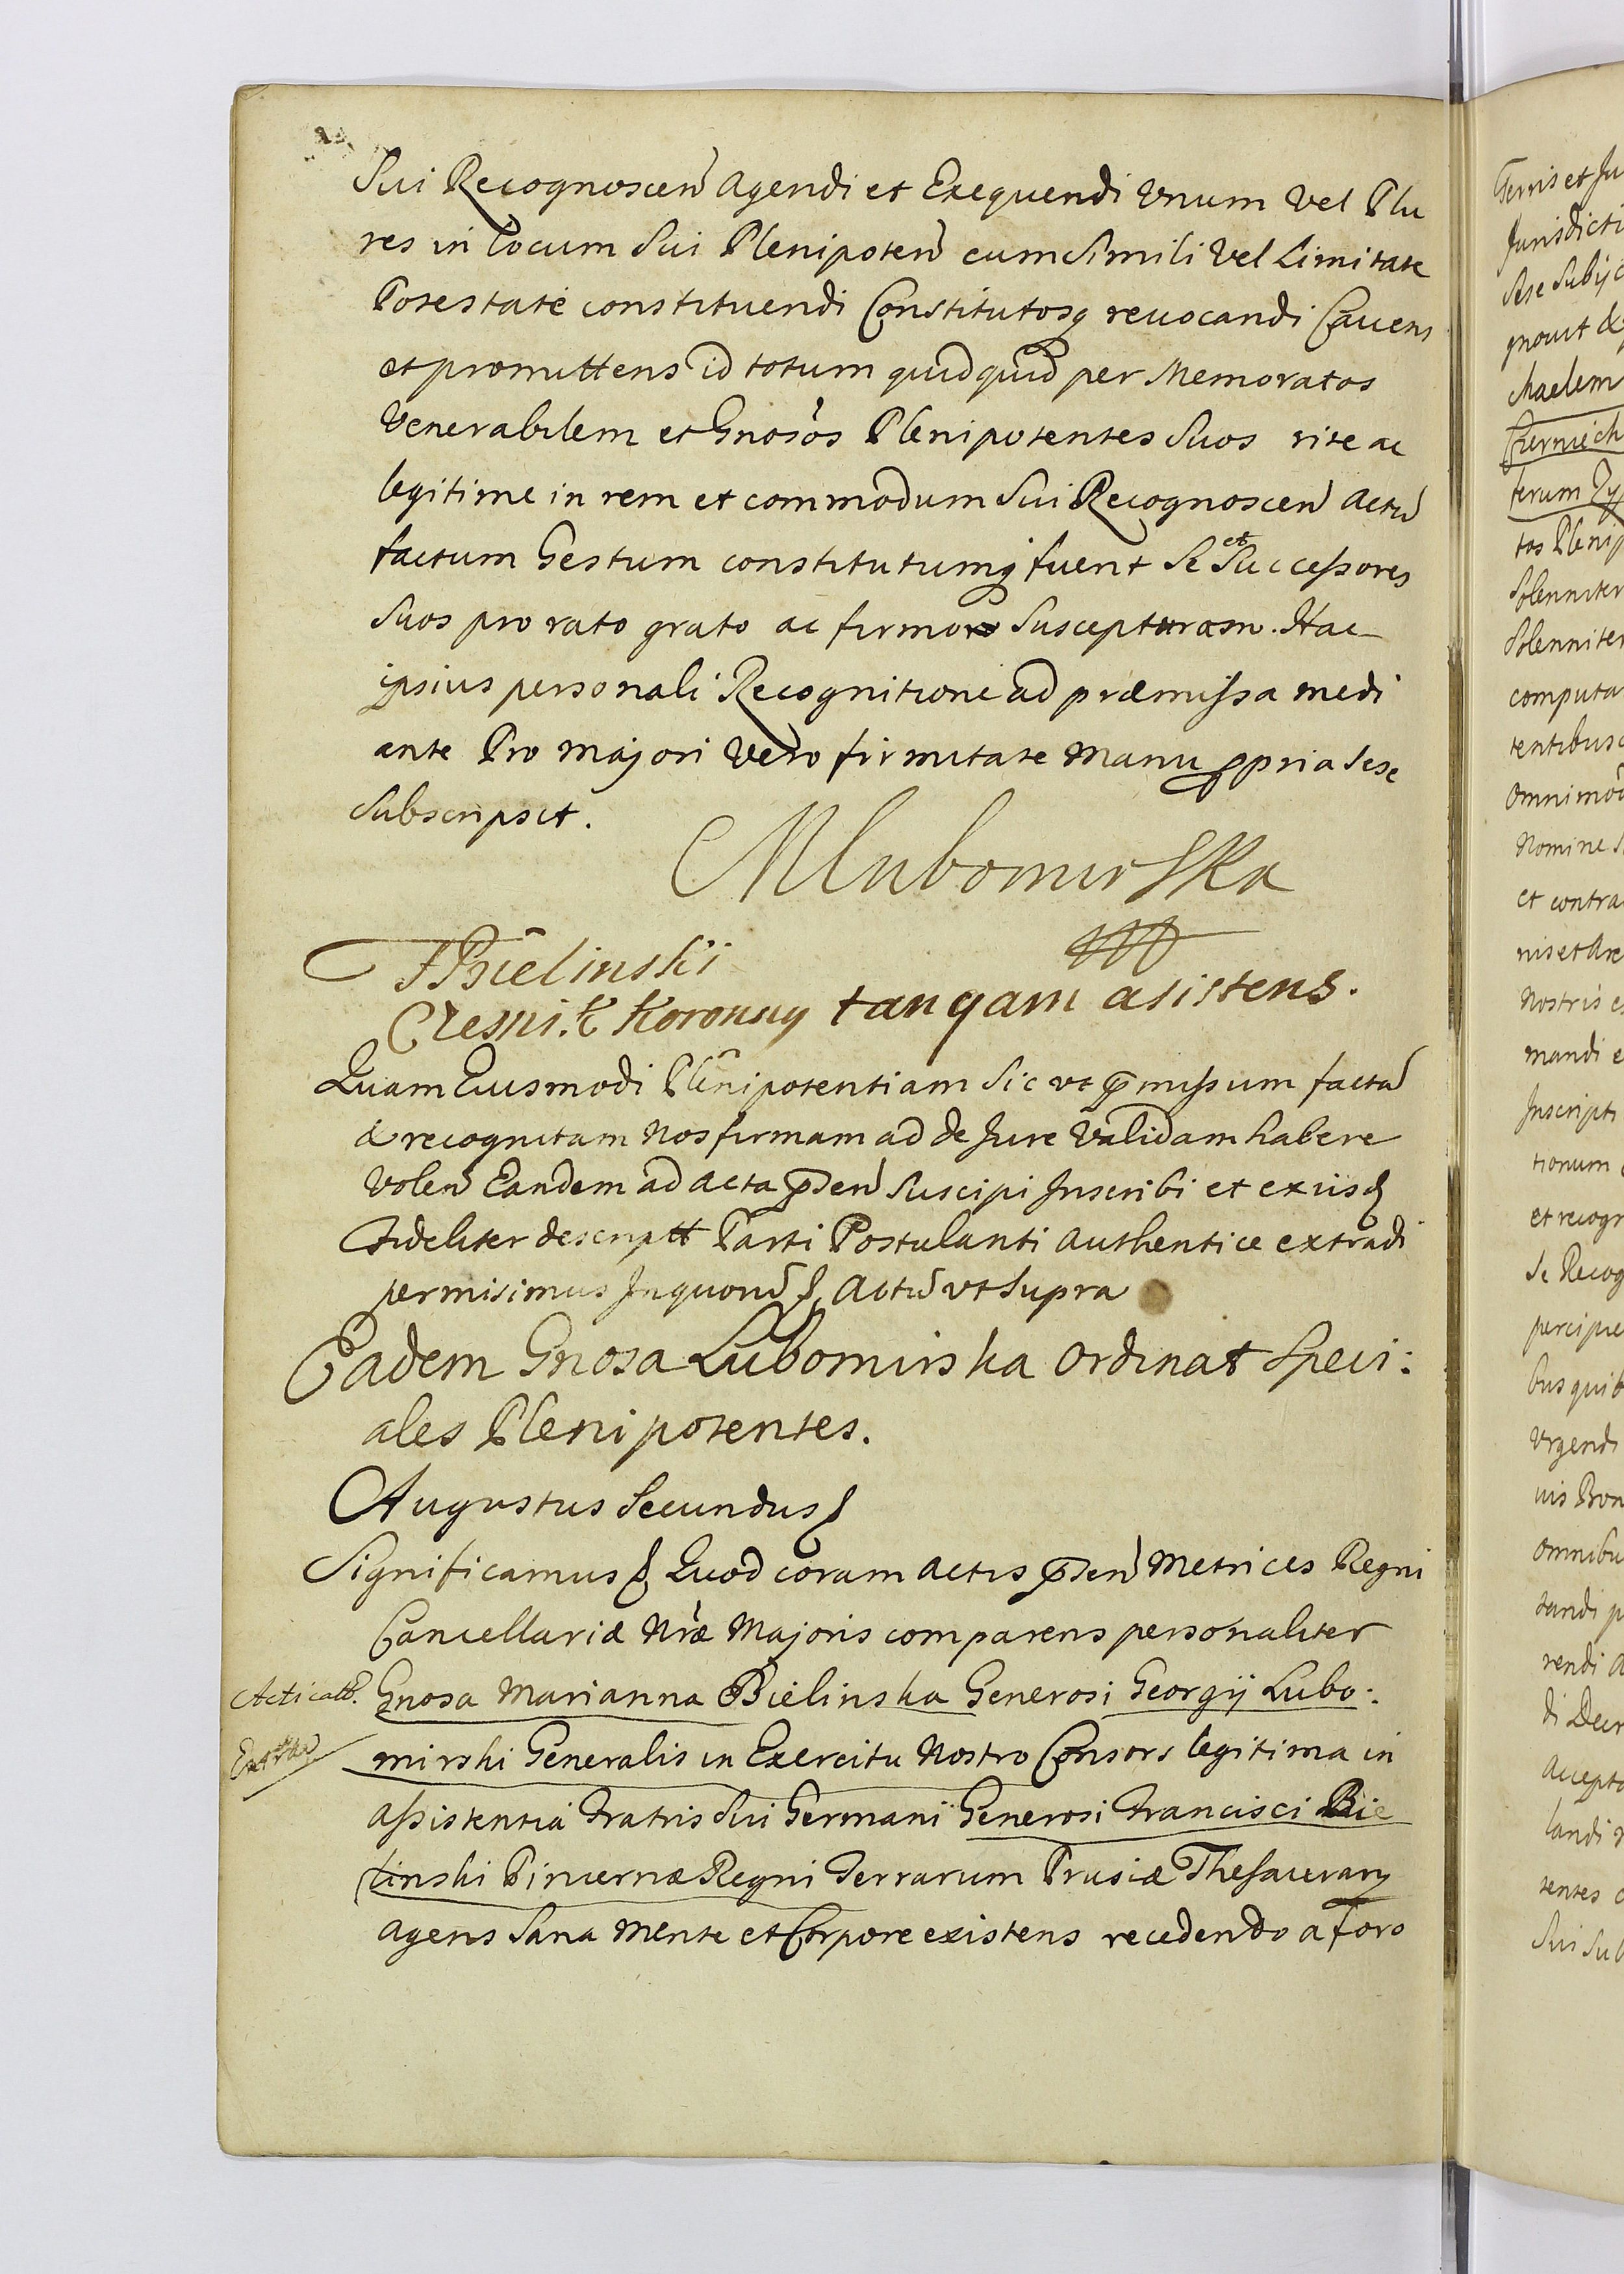 Sui Recognoscen Agendi et Exequendi Vnum Vel Plu
res in locum Sui Plenipoten cum Simili Vel Limitate
Potestate constituendi Constitutosq reuocandi Cauens
et promittens id totum quidquid per Memoratos
Venerabilem et Gnosos Plenipotentes Suos rite ac
legitime in rem et commodum Sui Recognoscen Actu
factum Gestum constitutumq fuerit Se et Successores
Suos pro rato grato ac firmo Suscepturam. Hac
ipsius personali Recognitione ad præmissa medi
ante Pro Majori Vero firmitate Manu ppria Sese
Subscripsit.
MLubomirska
FBielinski
Czesnik Koronny tanqam asistens.
Quam Eiusmodi Plenipotentiam Sic vt pmissum facta
& recognitam Nos firmam ad de Jure Validam habere
Volen Eandem ad Acta pnden Suscipi Inscribi et ex iisd
Fideliter descriptt Parti Postulanti Authentice extradi
permisimus In quoru Actu vt Supra
Eadem Gnosa Lubomirska Ordinat Speci:
ales Plenipotentes.
Augustus Secundus
Significamus Quod coram Actis pnden Metrices Regni
Cancellariæ Nræ Majoris comparens personaliter
Acticatt. Gnosa Marianna Bielinska Generosi Georgij Lubo:
mirski Generalis in Exercitu Nostro Consors legitima in
Assistentia Fratris Sui Germani Generosi Francisci Bie
linski Pincernæ Regni Terrarum Prusiæ Thesaurarij
Agens Sana Mente et Corpore existens recedendo a foro
Terris et Ju
Jurisdicti
Sese Subijc
gnouit
chaelem
Czerniech
terum Zy
tos Plenip
Solenniter
Solenniter
computa
tentibus
Omnimod
Nomine S
et contra
nis et Are
Nostris e
mandi e
Inscripti
tionum
et recogn
Se Recog
percipie
bus quib
Vrgendi
uis Bon
Omnibu
tandi p
rendi a
di Decr
Accepta
landi
tentes
Sui Sub